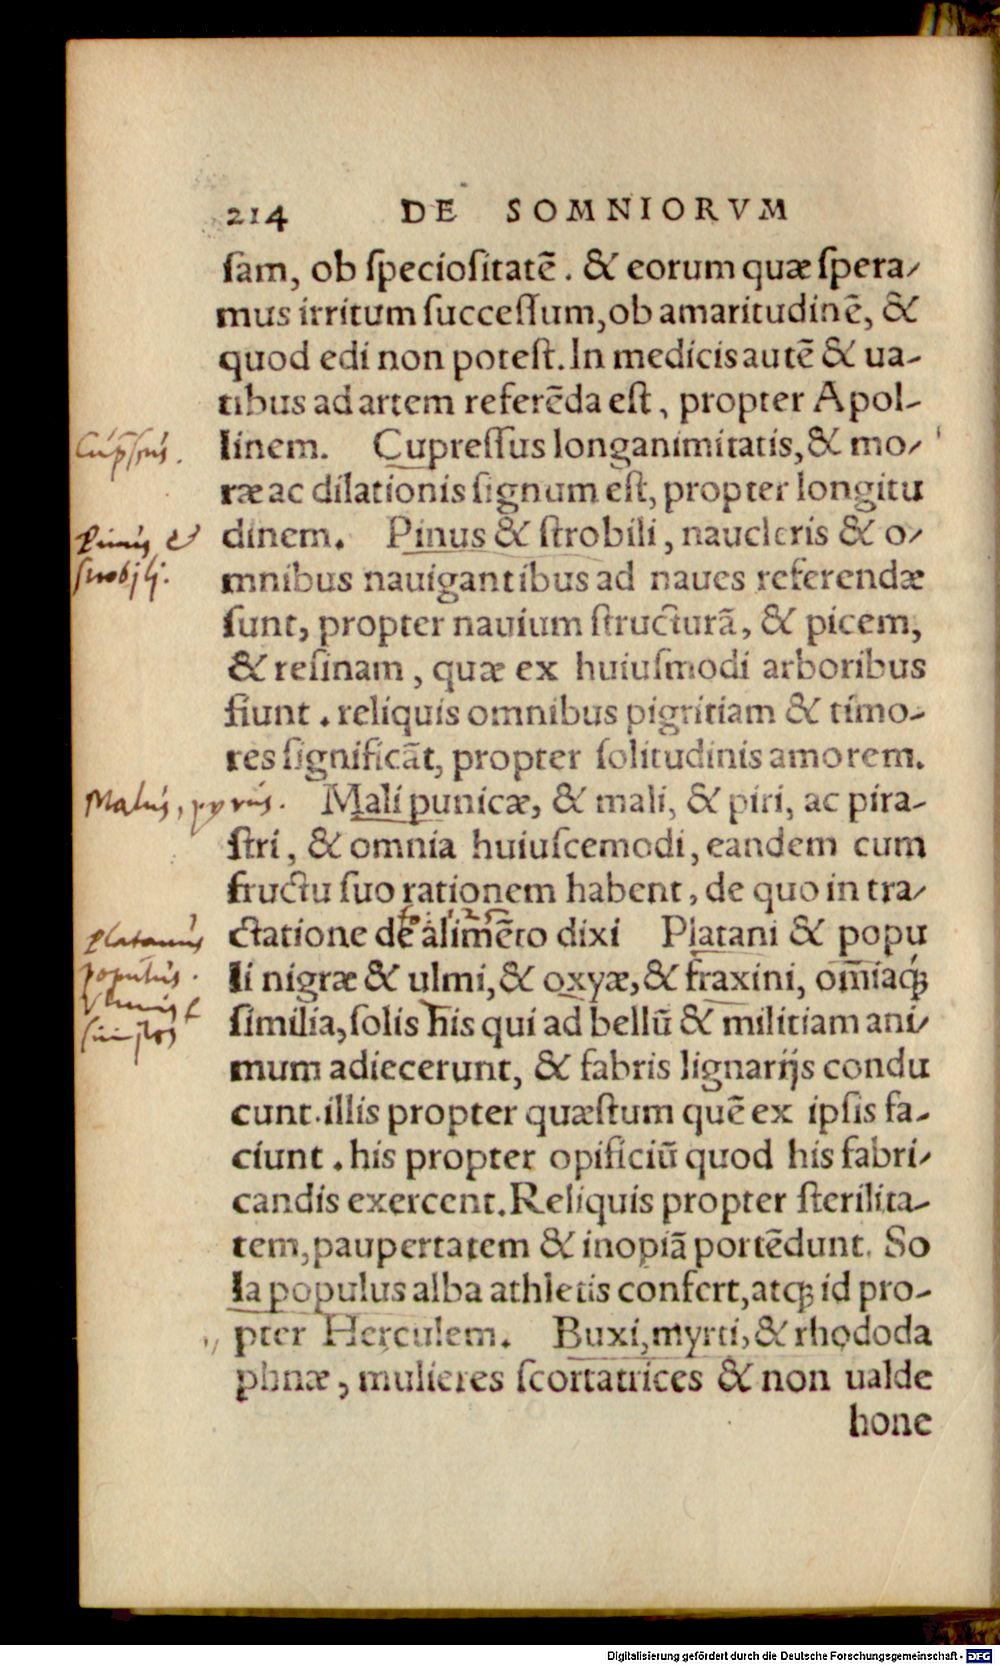 214 DE SOMNIORVM
sam, ob speciositatē. & eorum quæ spera-
mus irritum successum, ob amaritudinē, &
quod edi non potest. In medicis autē & ua-
tibus ad artem referēda est, propter Apol-
linem. Cupressus longanimitatis, & mo-
ræ ac dilationis signum est, propter longitu
dinem. Pinus & strobili, naucleris & o-
mnibus nauigantibus ad naues referendæ
sunt, propter nauium structurā, & picem,
& resinam, quæ ex huiusmodi arboribus
fiunt. reliquis omnibus pigritiam & timo-
res significāt, propter solitudinis amorem.
Malus, pyrus.
Mali punicæ, & mali, & piri, ac pira-
stri, & omnia huiuscemodi, eandem cum
fructu suo rationem habent, de quo in tra-
fo. 125
ctatione de alimēto dixi Platani & popu
li nigræ & ulmi, & oxyæ, & fraxini, om̄iaq́;
similia, solis his qui ad bellū & militiam ani-
mum adiecerunt, & fabris lignarijs condu
cunt. illis propter quæstum quē ex ipsis fa-
ciunt. his propter opificiū quod his fabri-
candis exercent. Reliquis propter sterilita-
tem, paupertatem & inopiā portēdunt. So
la populus alba athletis confert, atq; id pro-
pter Herculem. Buxi, myrti, & rhododa
phnæ, mulieres scortatrices & non ualde
hone
Pinus &
strobilj.
Platanus
populus.
Vlmus &
Digitalisierung gefördert durch die Deutsche Forschungsgemeinschaft - DFG